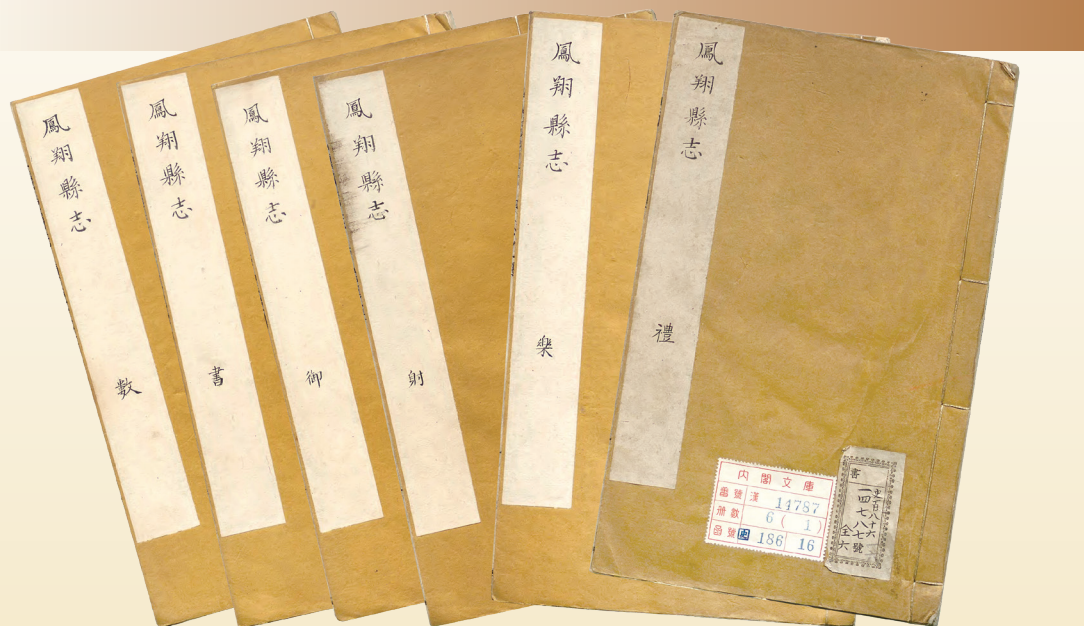 鳳翔縣志
禮
鳳翔縣志
楽
鳳翔縣志
射
鳳翔縣志
御
鳳翔縣志
書
鳳翔縣志
数
内閣文庫
番號 漢 14787
冊數 6 ( 1 )
函號 史 186 16
書
一四七八七號
全六